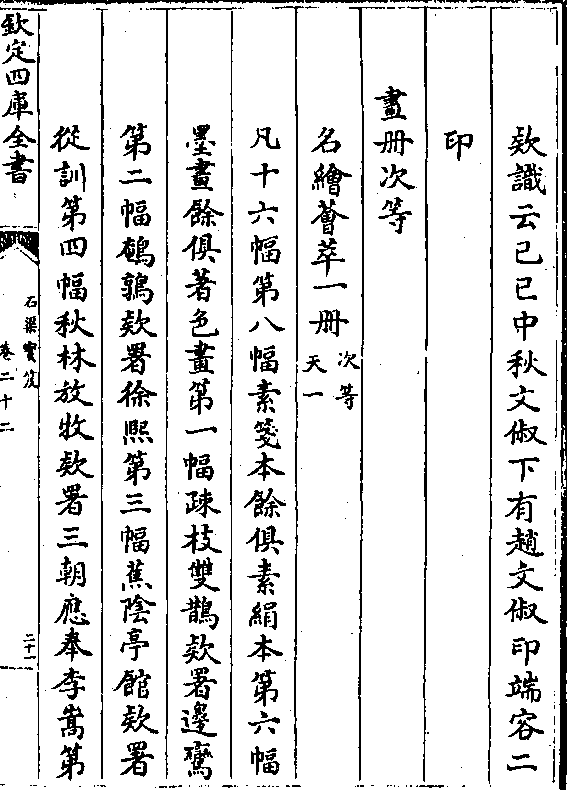 欵識云己巳中秋文俶下有趙文俶印端容二
印
畫册次等
名繪薈萃一册次等天一
凡十六幅第八幅素箋本餘俱素絹本第六幅
墨畫餘俱著色畫第一幅疎枝雙鵲欵署邊鸞
第二幅鵪鶉欵署徐熙第三幅蕉陰亭館欵署
從訓第四幅秋林放牧欵署三朝應奉李嵩第
欽定四庫全書
石渠寳笈
卷二十二
二十一